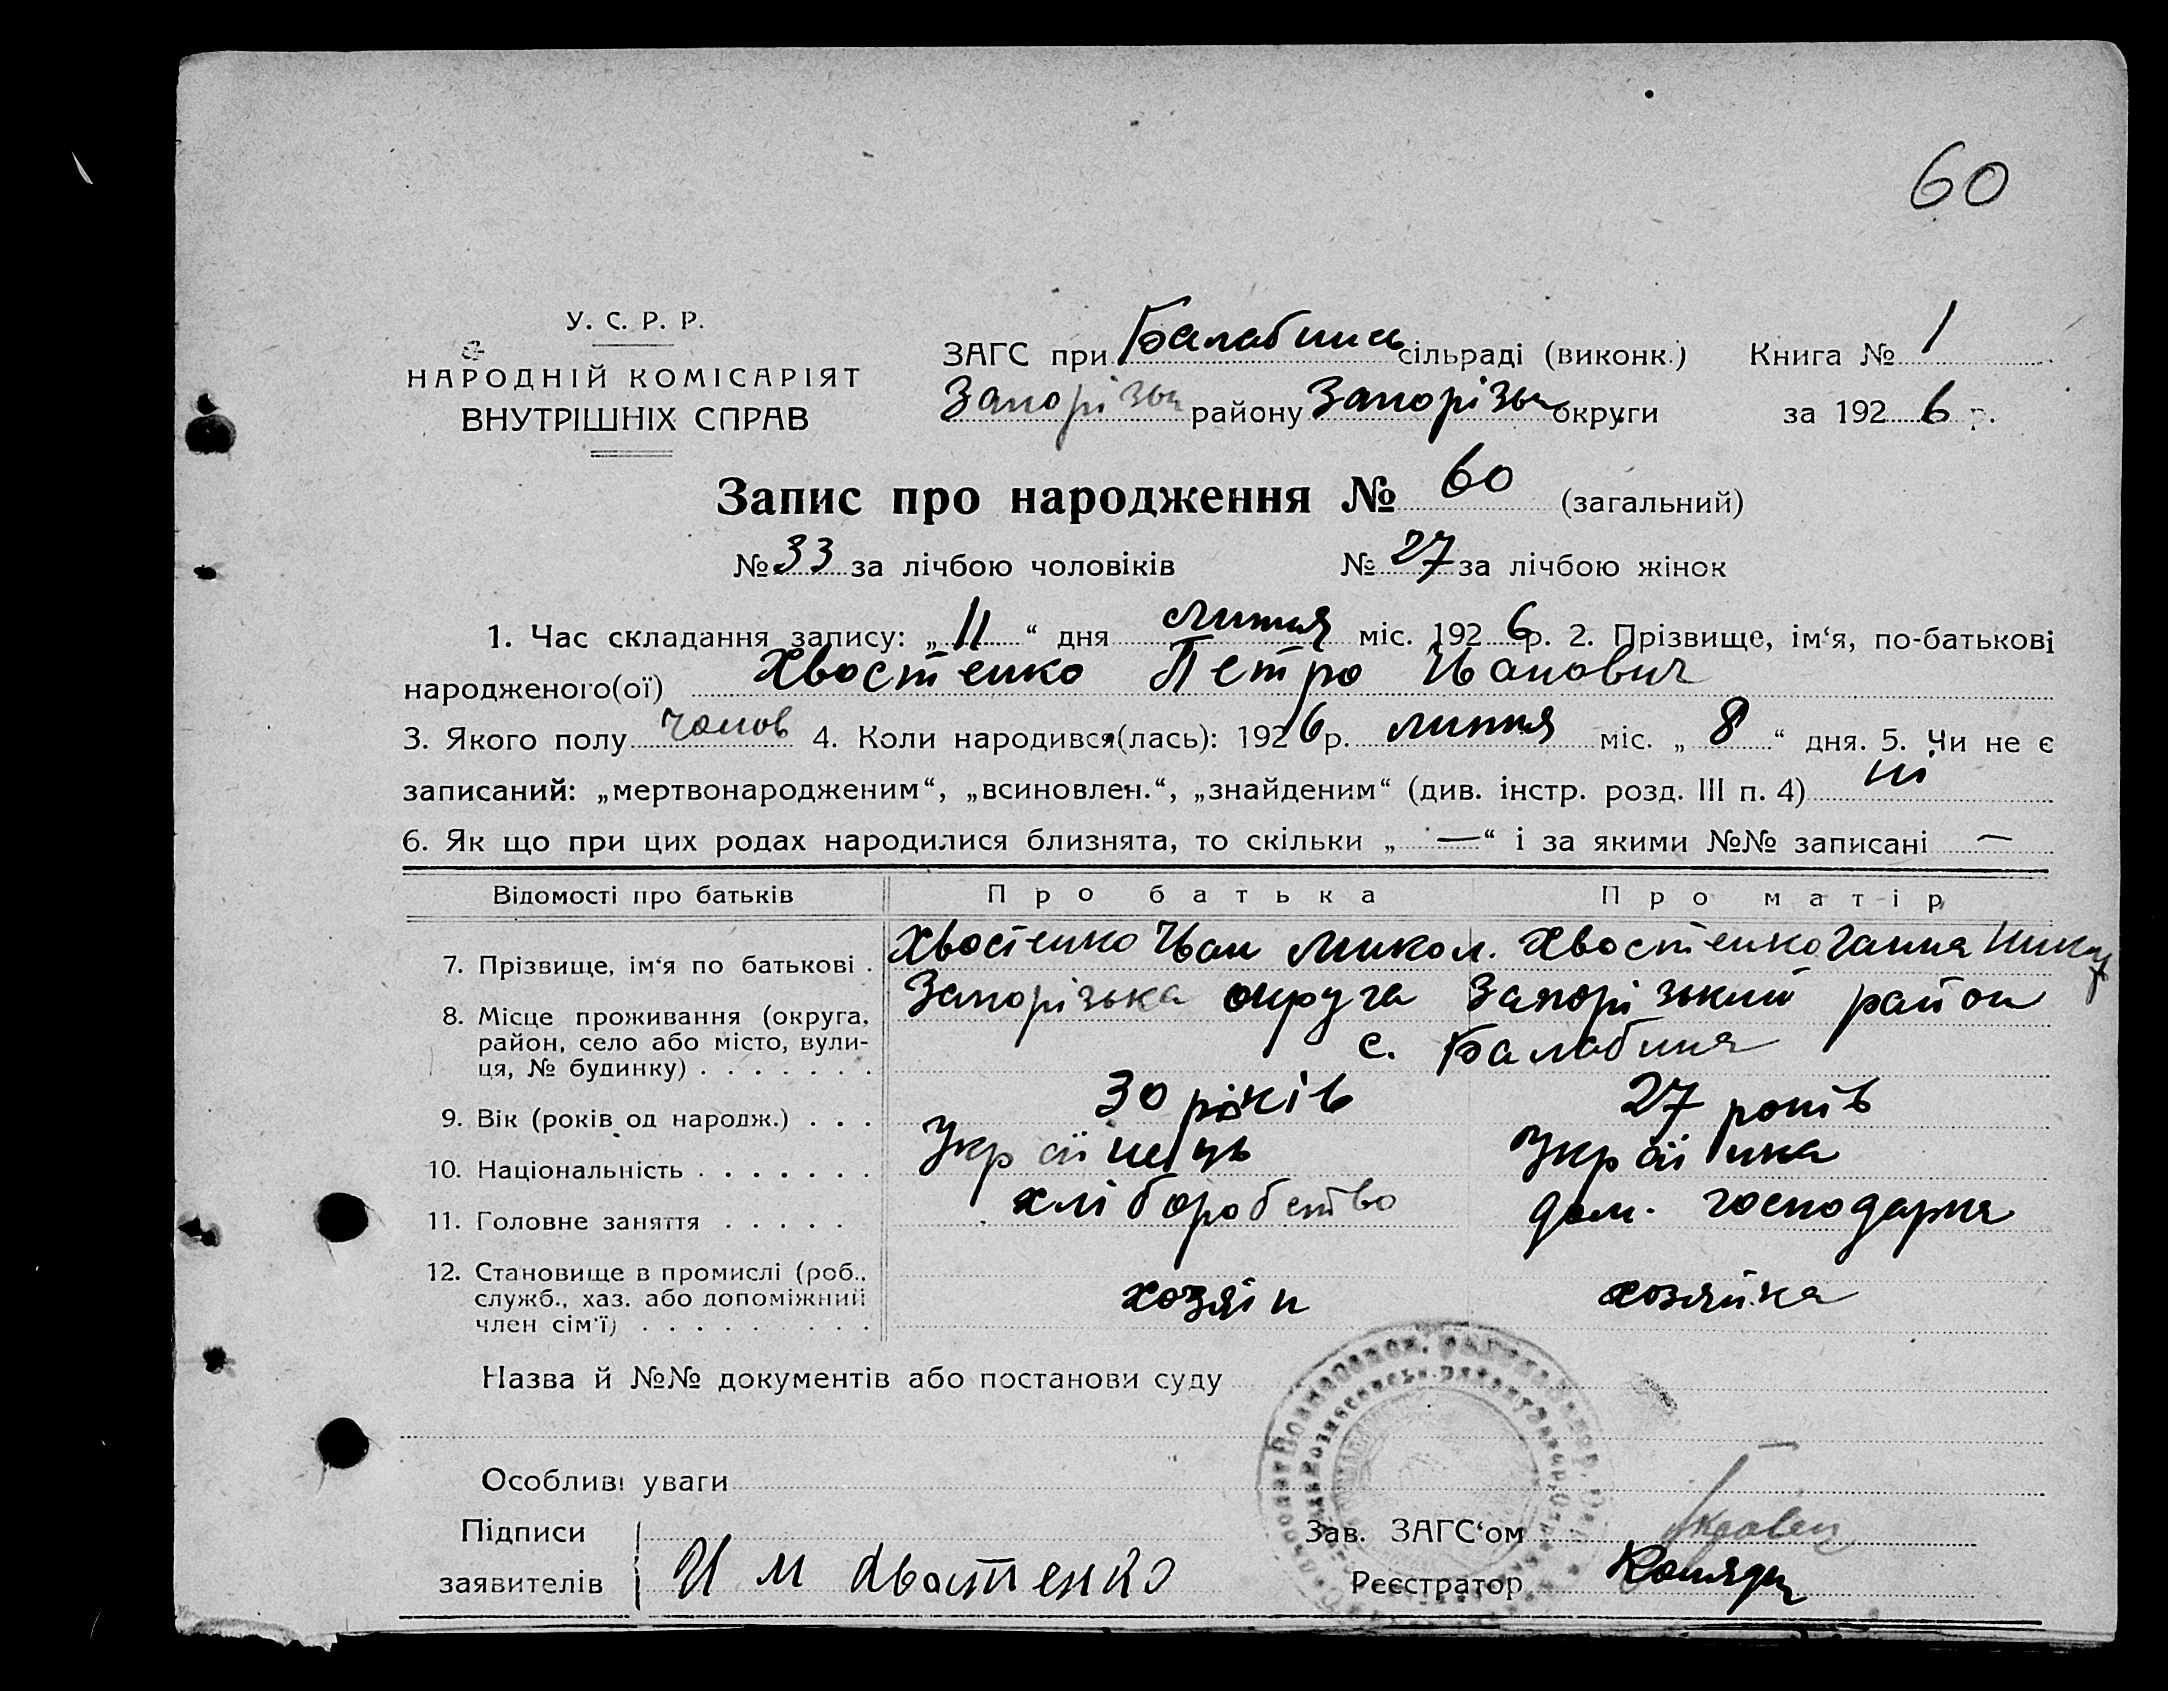 60
У. С. Р. Р.
НАРОДНІЙ КОМІСАРІЯТ
ВНУТРІШНІХ СПРАВ
ЗАГС при Балабинсь сільраді (виконк.) Книга № 1
Запорізьк району Запорізьк округи за 1926 р.
Запис про народження № 60 (загальний)
№ 33 за лічбою чоловіків № 27 за лічбою жінок
1. Час складання запису: „ 11 “ дня липня міс. 1926 р. 2. Прізвище, ім‘я, по-батькові
народженого(ої) Хвостенко Петро Іванович
3. Якого полу чолов 4. Коли народився(лась): 1926 р. липня міс. „ 8 “ дня. 5. Чи не є
записаний: „мертвонародженим“, „всиновлен.“, „знайденим“ (див. інстр. розд. III п. 4) ні
6. Як що при цих родах народилися близнята, то скільки „ — “ і за якими №№ записані —
Відомості про батьків Про батька Про матір
7. Прізвище, ім‘я по батькові . Хвостенко Іван Микол. Хвостенко Ганна
8. Місце проживання (округа, Запорізька округа Запорізький район
район, село або місто, вули- с. Балабина
ця, № будинку) . . . . . . .
9. Вік (років од народж.) . . . 30 років 27 років
10. Національність . . . . . . . Українець Українка
11. Головне заняття . . . . . хліборобство дом. господарка
12. Становище в промислі (роб.,
служб., хаз. або допоміжний хозяїн хозяйка
член сім‘ї) . . . . . . . . .
Назва й №№ документів або постанови суду
Особливі уваги
Підписи Зав. ЗАГС‘ом
заявителів И М Хвостенко Реєстратор